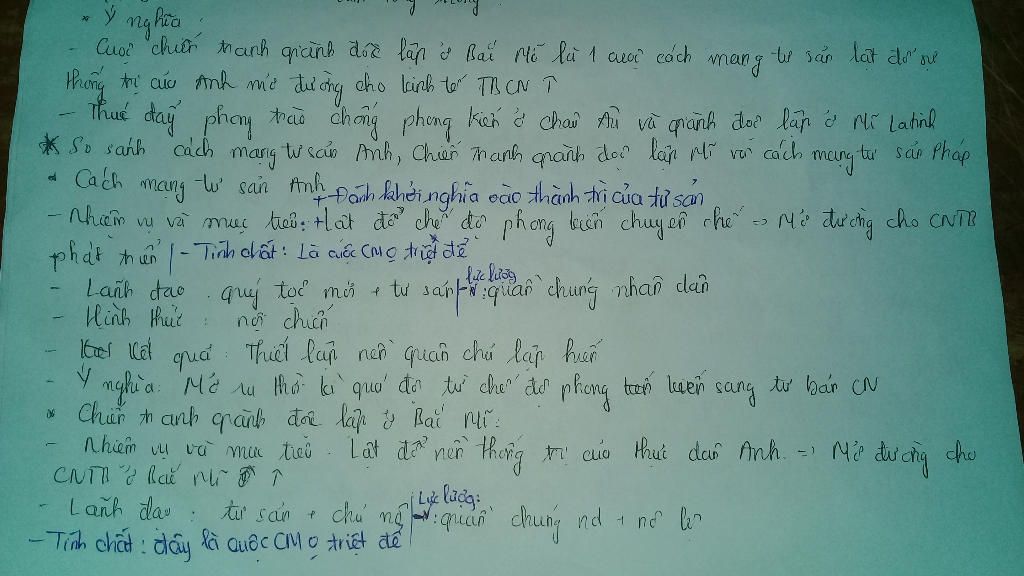 * Ý nghĩa:
- Cuộc chiến tranh giành độc lập ở Bắc Mĩ là 1 cuộc cách mạng tư sản lật đổ sự
thống trị của Anh mở đường cho kinh tế TBCN ↑
- Thúc đẩy phong trào chống phong kiến ở châu Âu và giành độc lập ở Mĩ Latinh
* So sánh cách mạng tư sản Anh, Chiến tranh giành độc lập Mĩ với cách mạng tư sản Pháp
* Cách mạng tư sản Anh
+ Đánh khởi nghĩa vào thành trì của tư sản
- Nhiệm vụ và mục tiêu: + Lật đổ chế độ phong kiến chuyên chế => Mở đường cho CNTB
phát triển | - Tính chất: Là cuộc CM ọ triệt để
- Lãnh đạo: quý tộc mới + tư sản | - lực lượng: quần chúng nhân dân
- Hình thức: nội chiến
- Kết quả: Thiết lập nền quân chủ lập hiến
- Ý nghĩa: Mở ra thời kì quá độ từ chế độ phong kiến sang tư bản CN
* Chiến tranh giành độc lập ở Bắc Mĩ:
- Nhiệm vụ và mục tiêu: Lật đổ nền thống trị của thực dân Anh => Mở đường cho
CNTB ở Bắc Mĩ ↑
- Lãnh đạo: tư sản + chủ nô | - Lực lượng: quần chúng nd + nô lệ
- Tính chất: đây là cuộc CM ọ triệt để